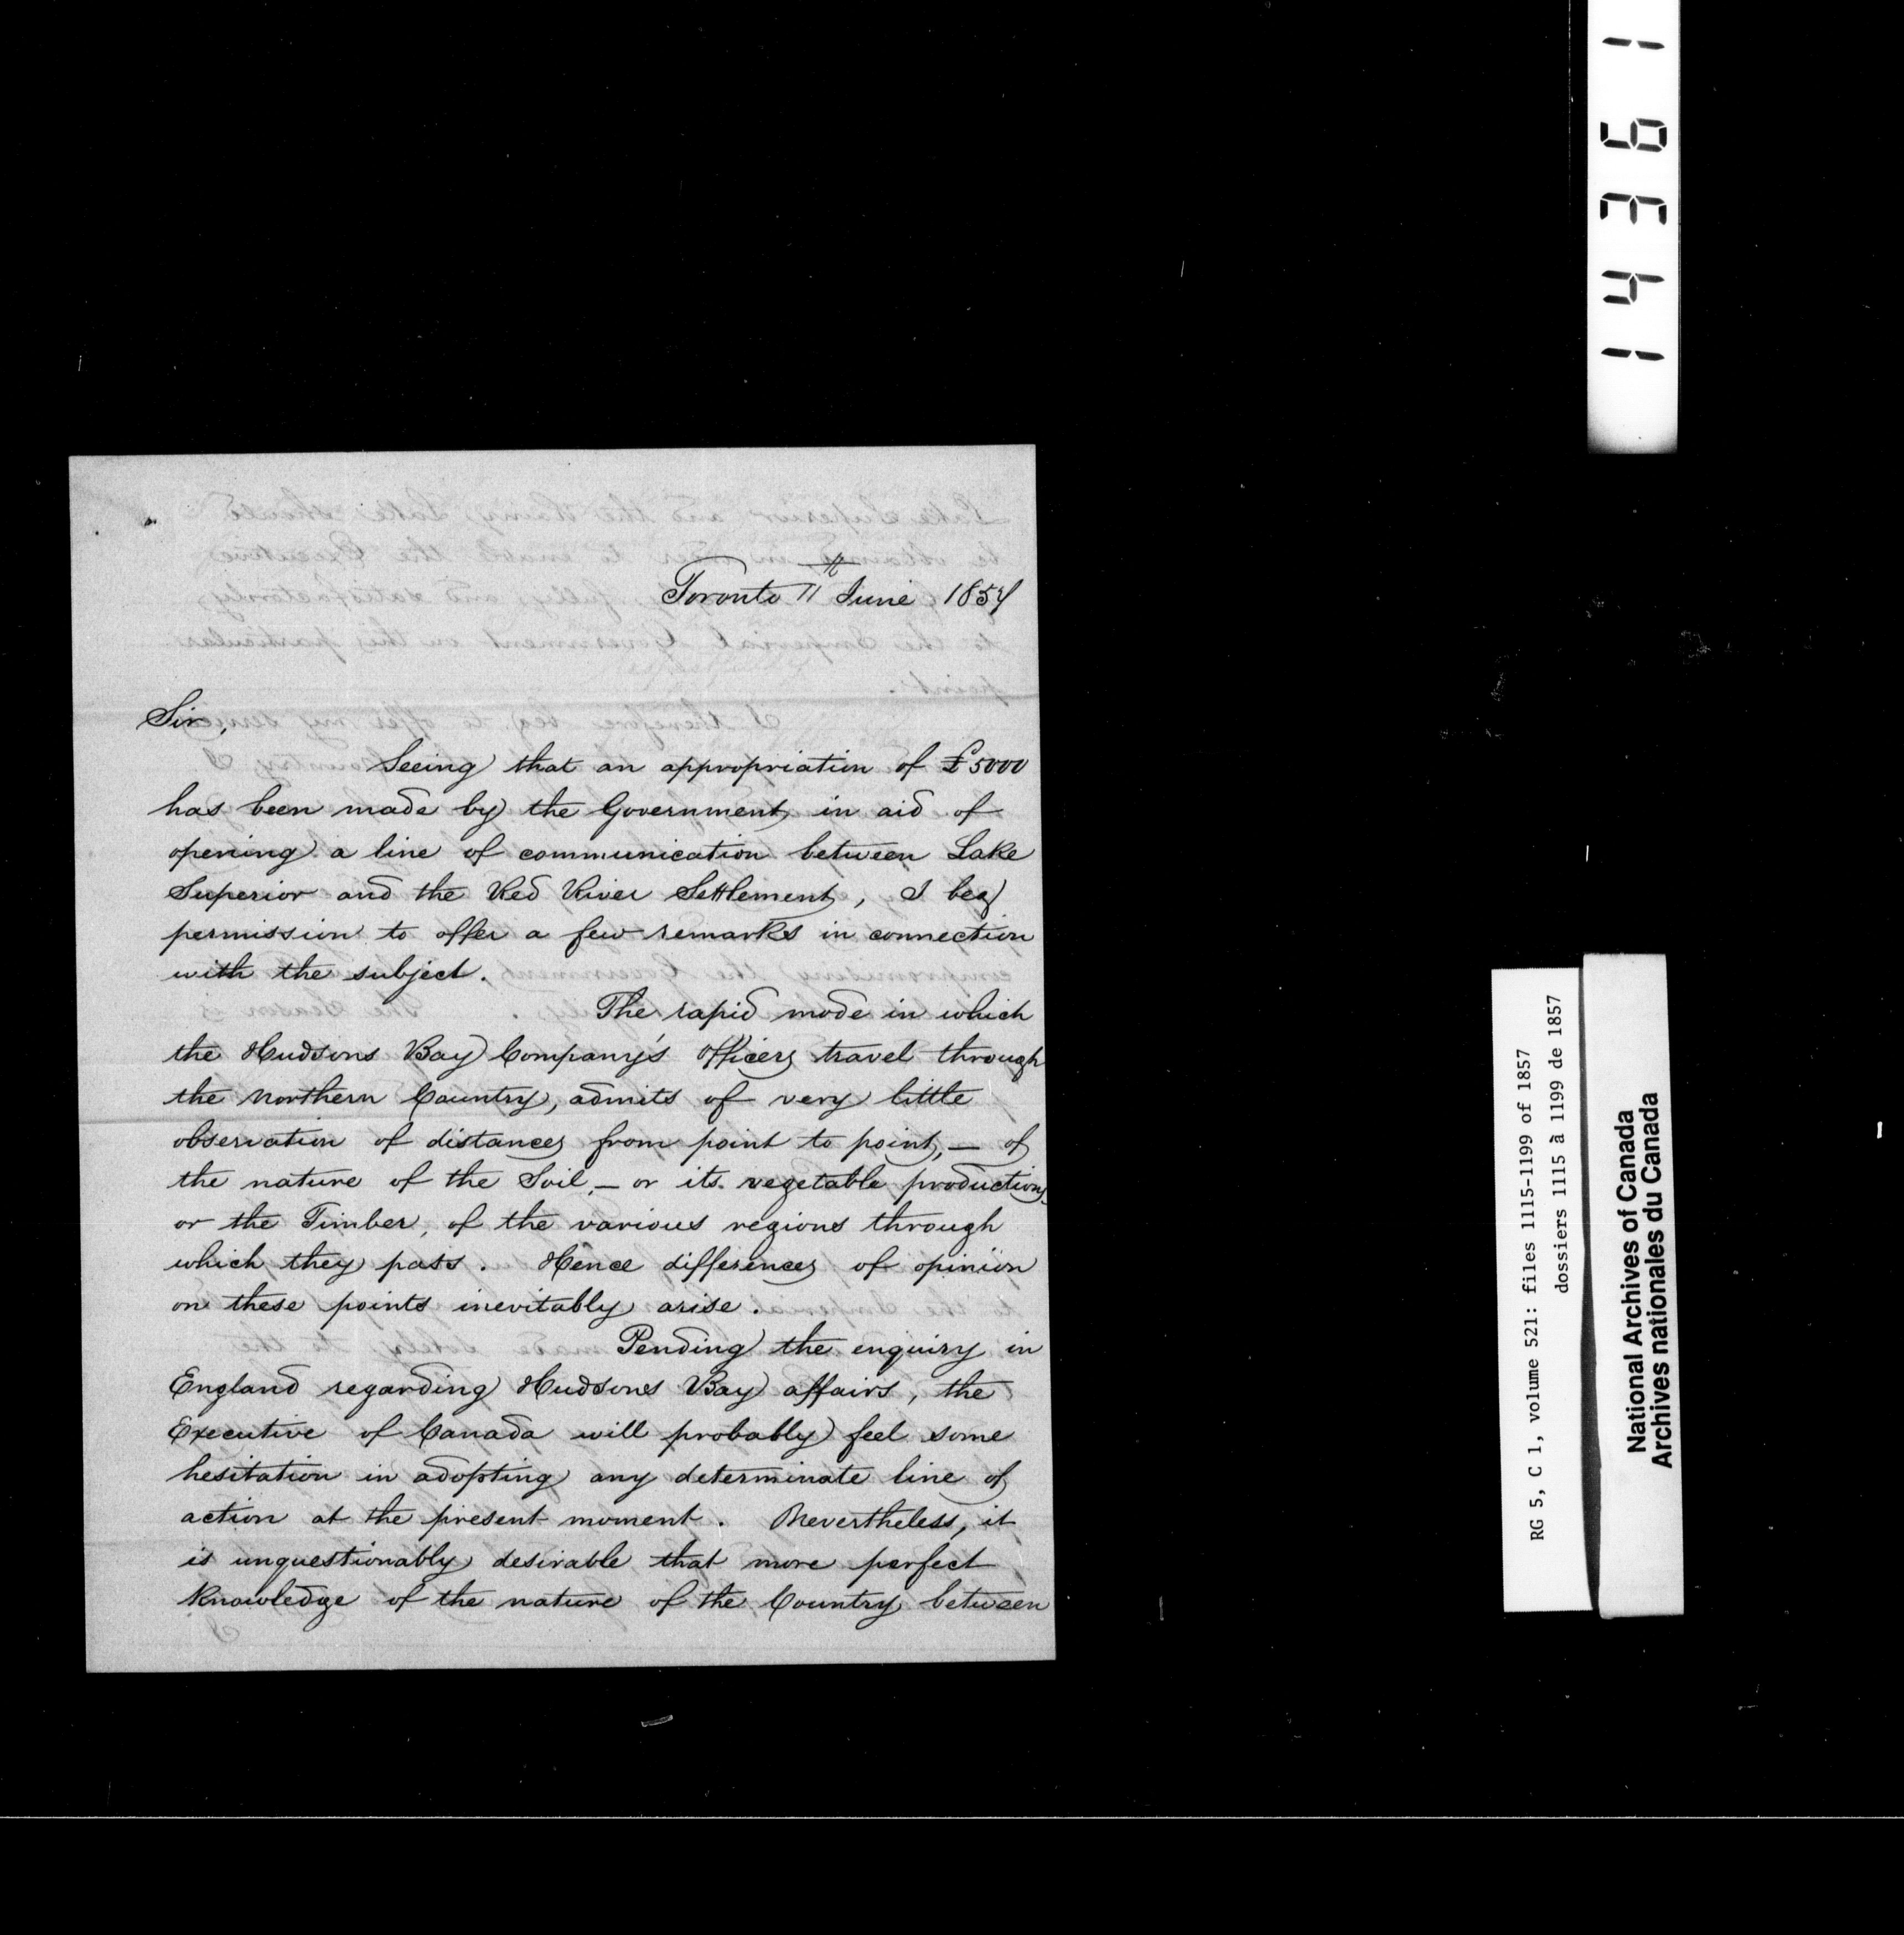 Toronto 11th June 1857
Sir,
Seeing that an appropriation of £5000
has been made by the Government in aid of
opening a line of communication between Lake
Superior and the Red River Settlement, I beg
permission to offer a few remarks in connection
with the subject.
The rapid mode in which
the Hudsons Bay Company's Officers travel through
the Northern Country, admits of very little
observation of distances from point to point, — of
the nature of the Soil, — or its vegetable productions
or the Timber, of the various regions through
which they pass. Hence differences of opinion
on these points inevitably arise.
Pending the enquiry in
England regarding Hudsons Bay affairs, the
Executive of Canada will probably feel some
hesitation in adopting any determinate line of
action at the present moment. Nevertheless, it
is unquestionably desirable that more perfect
knowledge of the nature of the Country between
14361
RG 5, C 1, volume 521: files 1115-1199 of 1857
dossiers 1115 à 1199 de 1857
National Archives of Canada
Archives nationales du Canada